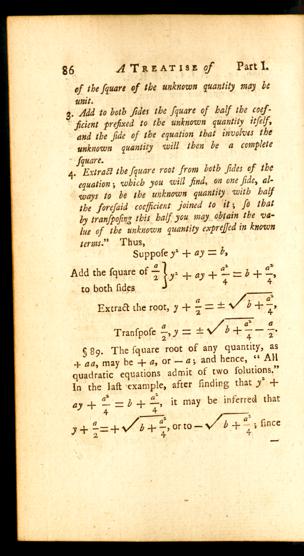 86 A TREATISE of Part I.
of the ſquare of the unknown quantity may be
unit.
3. Add to both ſides the ſquare of half the coef-
ficient prefixed to the unknown quantity itſelf,
and the ſide of the equation that involves the
unknown quantity will then be a complete
ſquare.
4. Extract the square root from both ſides of the
equation; which you will find, on one ſide, al-
ways to be the unknown quantity with half
the foreſaid coefficient joined to it; ſo that
by tranſpoſing this half you may obtain the va-
lue of the unknown quantity expreſſed in known
terms.” Thus,
Suppoſe y² + ay = b,
Add the ſquare of a/2 } y² + ay + a²/4 = b + a²/4,
to both ſides
Extract the root, y + a/2 = ± √b + a²/4,
Tranſpoſe a/2, y = ± √b + a²/4 − a/2.
§ 89. The ſquare root of any quantity, as
+ aa, may be + a, or − a; and hence, “ All
quadratic equations admit of two ſolutions.”
In the laſt example, after finding that y² +
ay + a²/4 = b + a²/4, it may be inferred that
y + a/2 = + √b + a²/4, or to − √b + a²/4; ſince